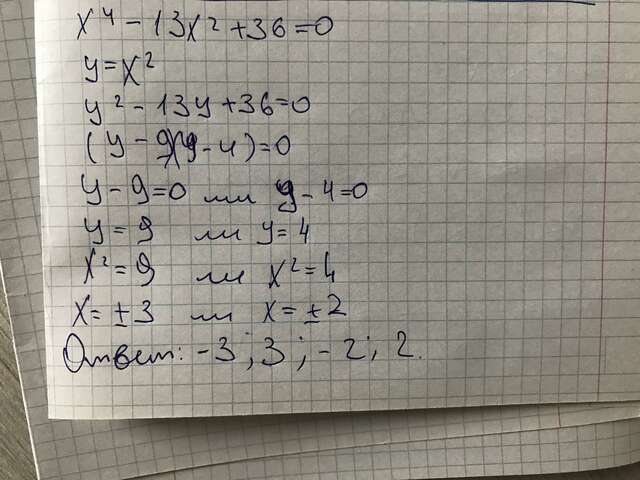 x⁴ - 13x² + 36 = 0
y = x²
y² - 13y + 36 = 0
(y - 9)(y - 4) = 0
y - 9 = 0 или y - 4 = 0
y = 9 или y = 4
x² = 9 или x² = 4
x = ±3 или x = ±2
Ответ: -3; 3; -2; 2.